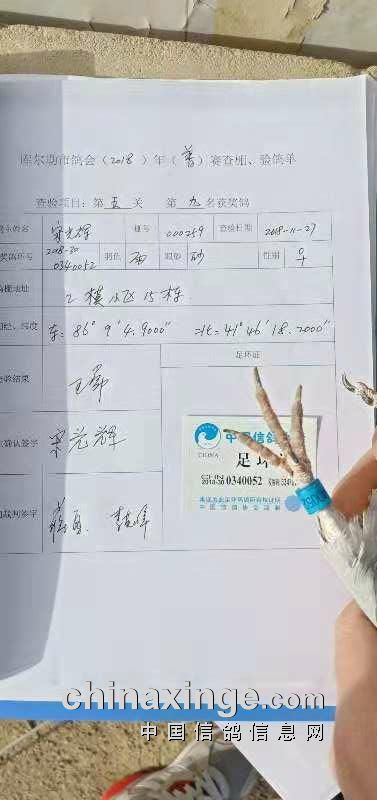 库尔勒市鸽会(2018)年(普)赛查棚、验鸽单
查验项目:第五关 第九名获奖鸽
主姓名 宋光辉 棚号 000259 查验日期 2018-11-27
奖鸽环号 2018-30 0340052 羽色 雨 眼砂 砂 性别 ♀
棚地址 2模小区15栋
经、纬度 东:86°9'4.9000" 北=41°46'18.2000"
验结果 足环证
确认签字 宋光辉
裁判签字
中国信鸽
CHINA 足环
CHN
2018-30 0340052
中国信鸽协会监制
chinaxinge.com
中国信鸽信息网